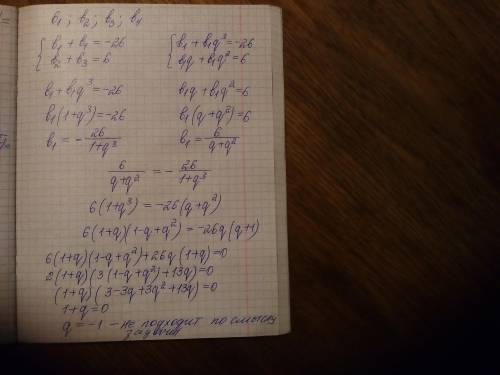 b₁; b₂; b₃; b₄
{ b₁ + b₄ = -26
b₂ + b₃ = 6
{ b₁ + b₁q³ = -26
b₁q + b₁q² = 6
b₁ + b₁q³ = -26
b₁q + b₁q² = 6
b₁(1+q³) = -26
b₁(q+q²) = 6
b₁ = - 26/(1+q³)
b₁ = 6/(q+q²)
6/(q+q²) = - 26/(1+q³)
6(1+q³) = -26(q+q²)
6(1+q)(1-q+q²) = -26q(q+1)
6(1+q)(1-q+q²)+26q(1+q)=0
2(1+q)(3(1-q+q²)+13q)=0
(1+q)(3-3q+3q²+13q)=0
1+q=0
q=-1 - не подходит по смыслу
задачи